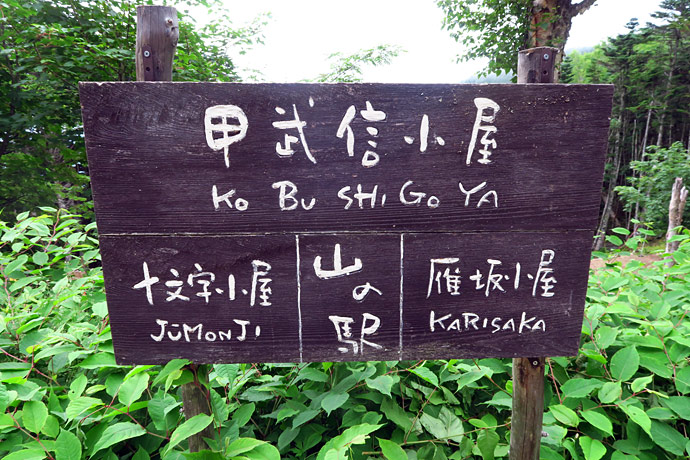 甲武信小屋
KOBUSHIGOYA
十文字小屋
JŪMONJI
山の駅
雁坂小屋
KARISAKA